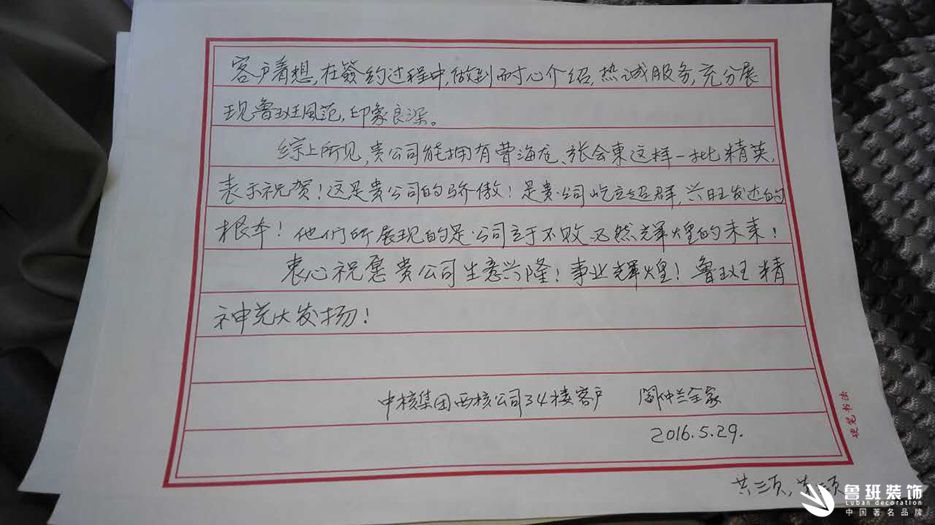 客户着想,在签约过程中做到耐心介绍,热诚服务,充分展
现鲁班风范,印象良深。
综上所见,贵公司能拥有曹海龙、张会东这样一批精英,
表示祝贺!这是贵公司的骄傲!是贵公司屹立超群,兴旺发达的
根本!他们所展现的是公司立于不败必然辉煌的未来!
衷心祝愿贵公司生意兴隆!事业辉煌!鲁班精
神光大发扬!
中核集团西核公司34楼客户 阎仲兰全家
2016.5.29.
硬笔书法
共三页,第 页
鲁班装饰
Luban decoration
中国著名品牌